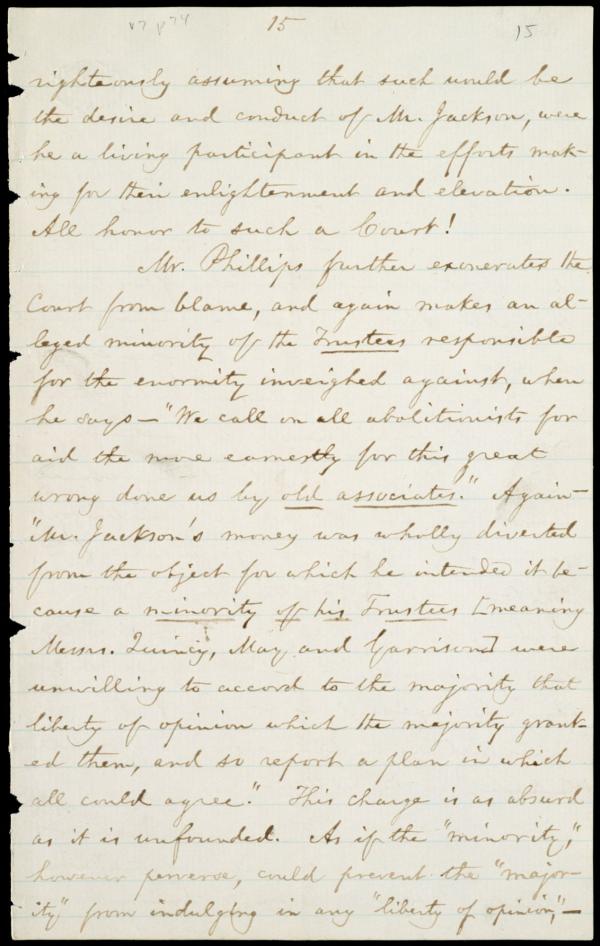 v7 p74
15
15
righteously assuming that such would be
the desire and conduct of Mr. Jackson, were
he a living participant in the efforts mak-
ing for their enlightenment and elevation.
All honor to such a Court!
Mr. Phillips further exonerates the
Court from blame, and again makes an al-
leged minority of the Trustees responsible
for the enormity inveighed against, when
he says—"We call on all abolitionists for
aid the more earnestly for this great
wrong done us by old associates." Again—
"Mr. Jackson's money was wholly diverted
from the object for which he intended it be-
cause a minority of his Trustees [meaning
Messrs. Quincy, May and Garrison] were
unwilling to accord to the majority that
liberty of opinion which the majority grant-
ed them, and so report a plan in which
all could agree." This charge is as absurd
as it is unfounded. As if the "minority,"
however perverse, could prevent the "major-
ity" from indulging in any "liberty of opinion,"—